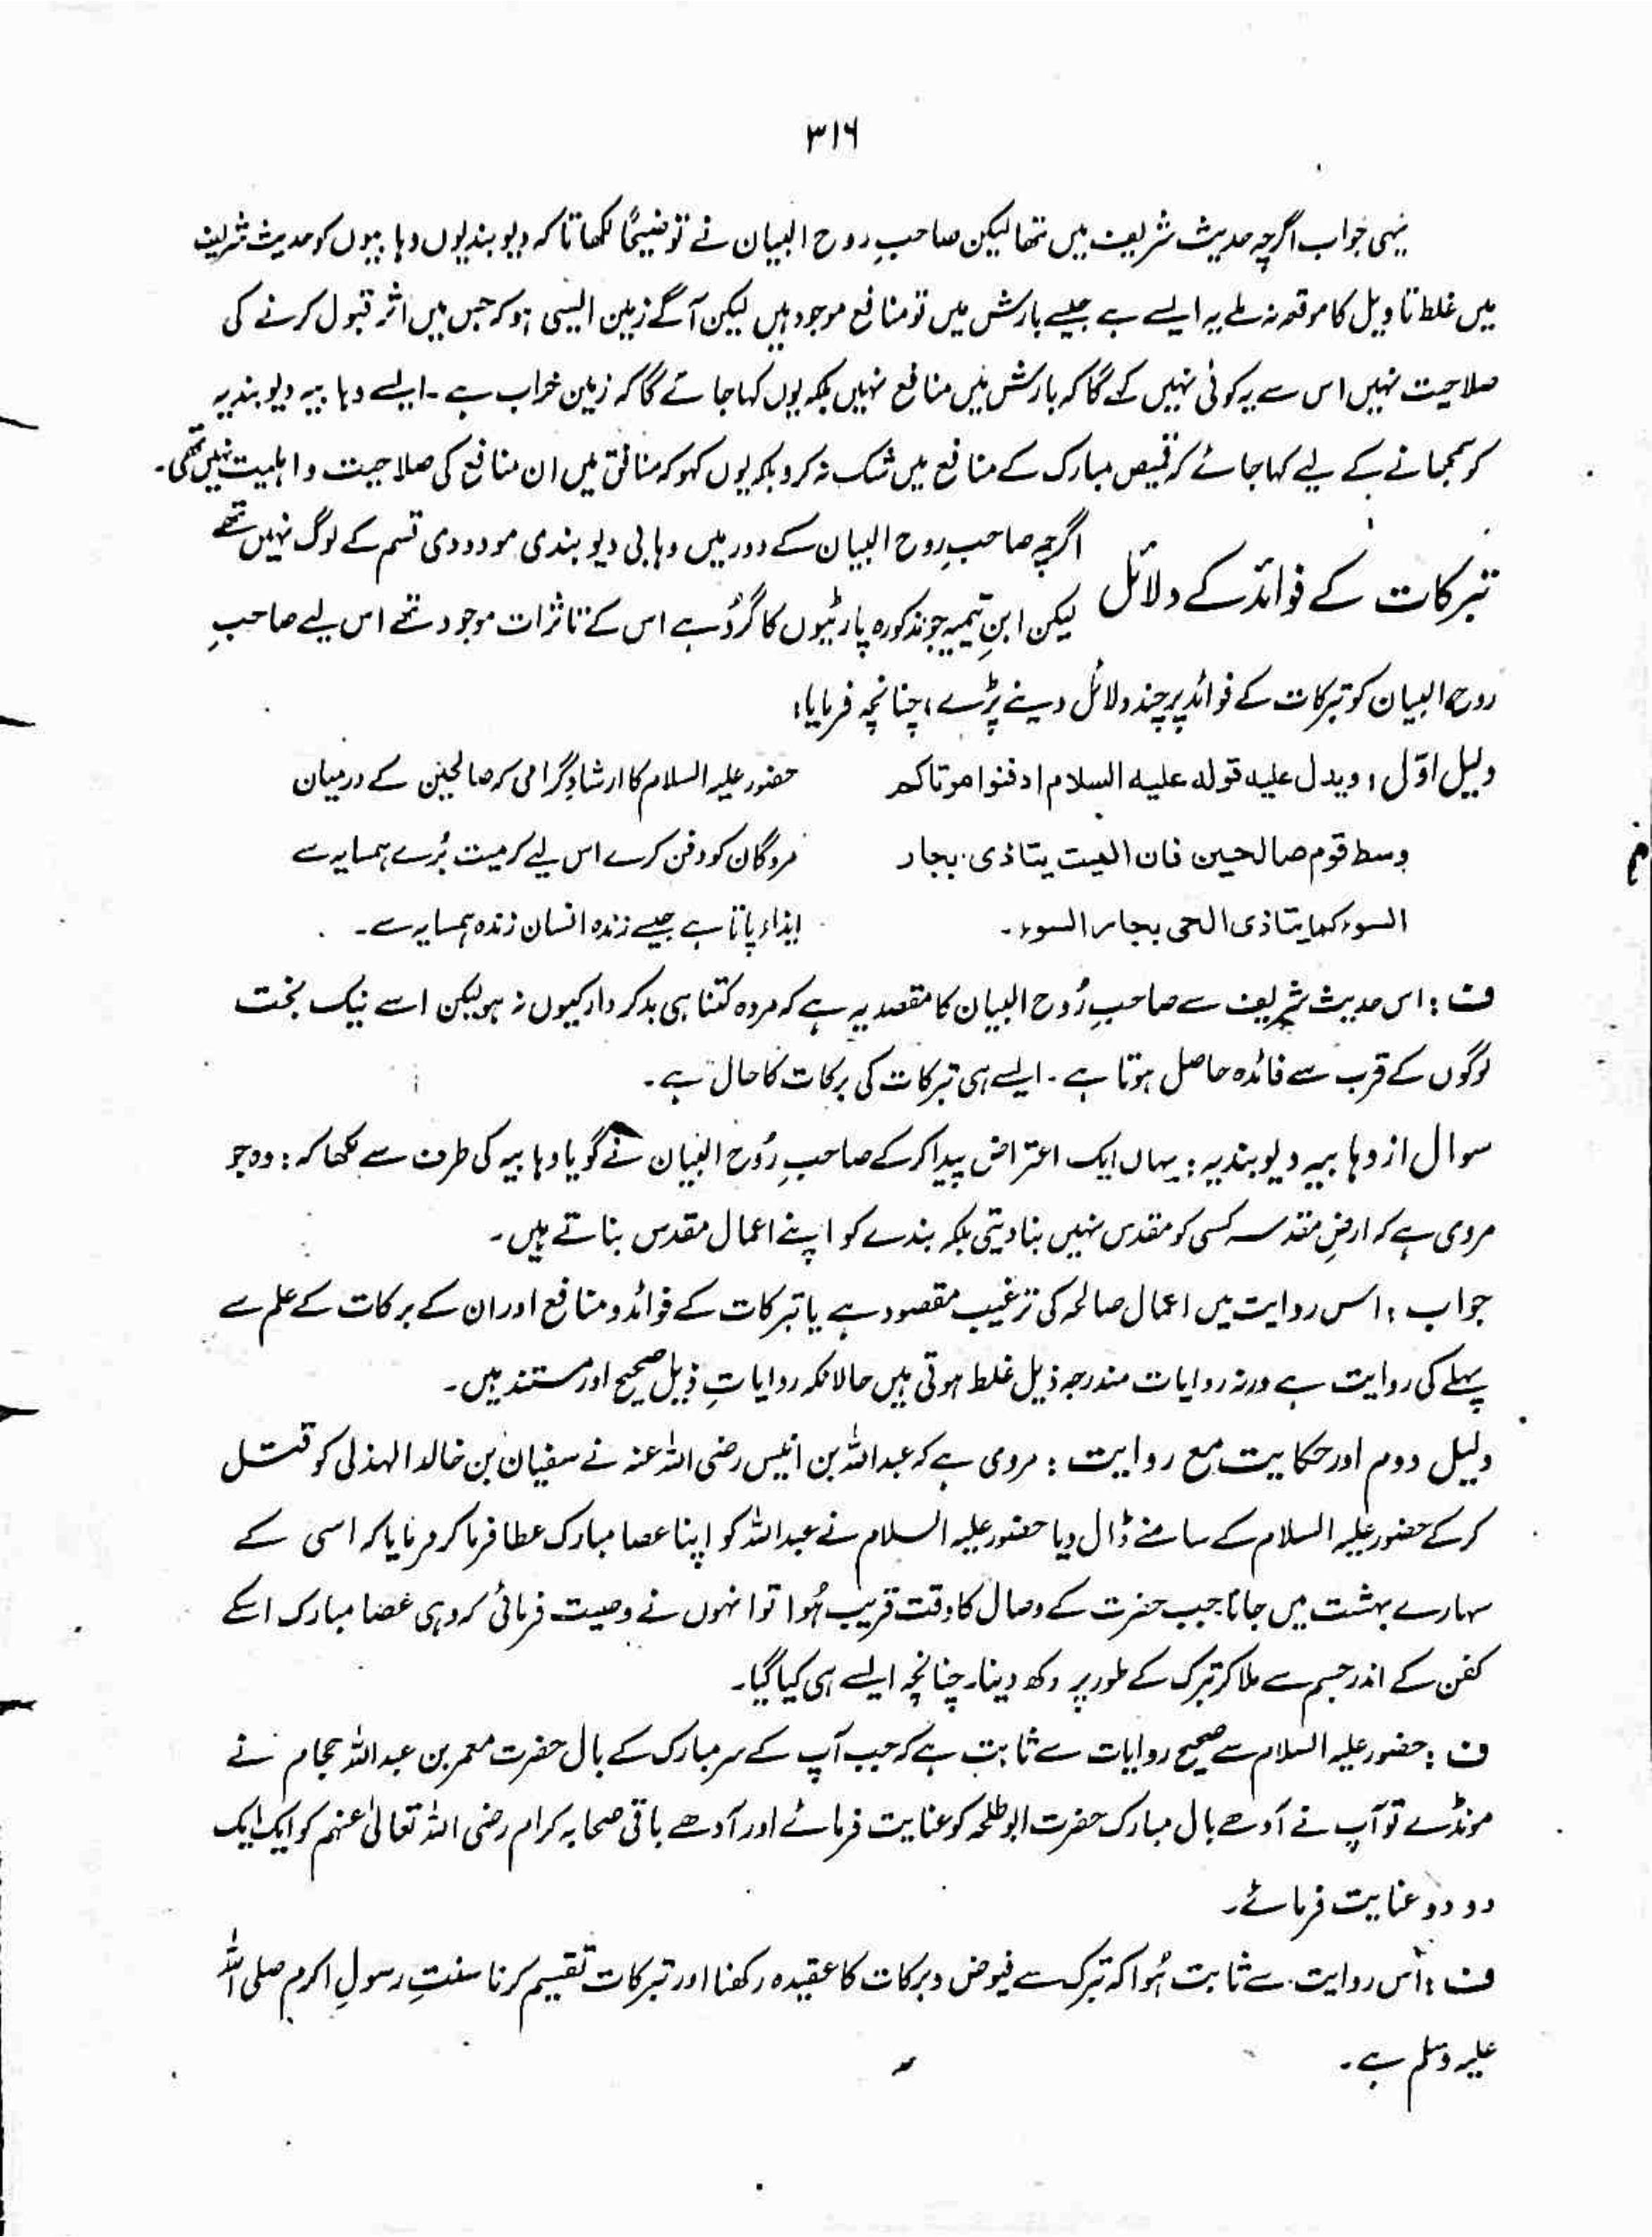 ۳۱۶
یہی جواب اگرچہ حدیث شریف میں تھا لیکن صاحبِ روح البیان نے توضیحًا لکھا تاکہ دیوبندیوں وہابیوں کو حدیث شریف
میں غلط تاویل کا موقعہ نہ ملے یہ ایسے ہے جیسے بارش میں تو منافع موجود ہیں لیکن آگے زمین ایسی ہو کہ جس میں اثر قبول کرنے کی
صلاحیت نہیں اس سے یہ کوئی نہیں کہے گا کہ بارش میں منافع نہیں بلکہ یوں کہا جائے گا کہ زمین خراب ہے ۔ ایسے وہابیہ دیوبندیہ
کو سمجھانے کے لیے کہا جائے کہ قمیص مبارک کے منافع میں شک نہ کرو بلکہ یوں کہو کہ منافق میں ان منافع کی صلاحیت و اہلیت نہیں تھی۔
تبرکات کے فوائد کے دلائل
اگرچہ صاحبِ روح البیان کے دور میں وہابی دیوبندی مودودی قسم کے لوگ نہیں تھے
لیکن ابنِ تیمیہ جو مذکورہ پارٹیوں کا گرُو ہے اس کے تاثرات موجود تھے اس لیے صاحبِ
روح البیان کو تبرکات کے فوائد پر چند دلائل دینے پڑے ، چنانچہ فرمایا:
دلیل اوّل : ویدل علیہ قولہ علیہ السلام ادفنوا موتاکم
وسط قوم صالحین فان المیت یتاذی بجار
السوء کما یتاذی الحی بجار السوء ۔
حضور علیہ السلام کا ارشادِ گرامی کہ صالحین کے درمیان
مردگان کو دفن کرے اس لیے کہ میت بُرے ہمسایہ سے
ایذاء پاتا ہے جیسے زندہ انسان زندہ ہمسایہ سے ۔
ف : اس حدیث شریف سے صاحبِ رُوح البیان کا مقصد یہ ہے کہ مردہ کتنا ہی بدکردار کیوں نہ ہو لیکن اسے نیک بخت
لوگوں کے قرب سے فائدہ حاصل ہوتا ہے ۔ ایسے ہی تبرکات کی برکات کا حال ہے ۔
سوال از وہابیہ دیوبندیہ : یہاں ایک اعتراض پیدا کرکے صاحبِ رُوح البیان نے گویا وہابیہ کی طرف سے لکھا کہ : وہ جو
مروی ہے کہ ارضِ مقدسہ کسی کو مقدس نہیں بنا دیتی بلکہ بندے کو اپنے اعمال مقدس بناتے ہیں ۔
جواب : اس روایت میں اعمال صالحہ کی ترغیب مقصود ہے یا تبرکات کے فوائد و منافع اور ان کے برکات کے علم سے
پہلے کی روایت ہے ورنہ روایات مندرجہ ذیل غلط ہوتی ہیں حالانکہ روایاتِ ذیل صحیح اور مستند ہیں ۔
دلیل دوم اور حکایت مع روایت : مروی ہے کہ عبداللہ بن انیس رضی اللہ عنہ نے سفیان بن خالد الہذلی کو قتل
کرکے حضور علیہ السلام کے سامنے ڈال دیا حضور علیہ السلام نے عبداللہ کو اپنا عصا مبارک عطا فرما کر فرمایا کہ اسی کے
سہارے بہشت میں جانا جب حضرت کے وصال کا وقت قریب ہُوا تو انہوں نے وصیت فرمائی کہ وہی عصا مبارک اسکے
کفن کے اندر جسم سے ملا کر تبرک کے طور پر رکھ دینا ۔ چنانچہ ایسے ہی کیا گیا ۔
ف : حضور علیہ السلام سے صحیح روایات سے ثابت ہے کہ جب آپ کے سر مبارک کے بال حضرت معمر بن عبداللہ حجام نے
مونڈے تو آپ نے آدھے بال مبارک حضرت ابوطلحہ کو عنایت فرمائے اور آدھے باقی صحابہ کرام رضی اللہ تعالیٰ عنہم کو ایک ایک
دو دو عنایت فرمائے ۔
ف : اس روایت سے ثابت ہُوا کہ تبرک سے فیوض و برکات کا عقیدہ رکھنا اور تبرکات تقسیم کرنا سنتِ رسولِ اکرم صلی اللہ
علیہ وسلم ہے ۔